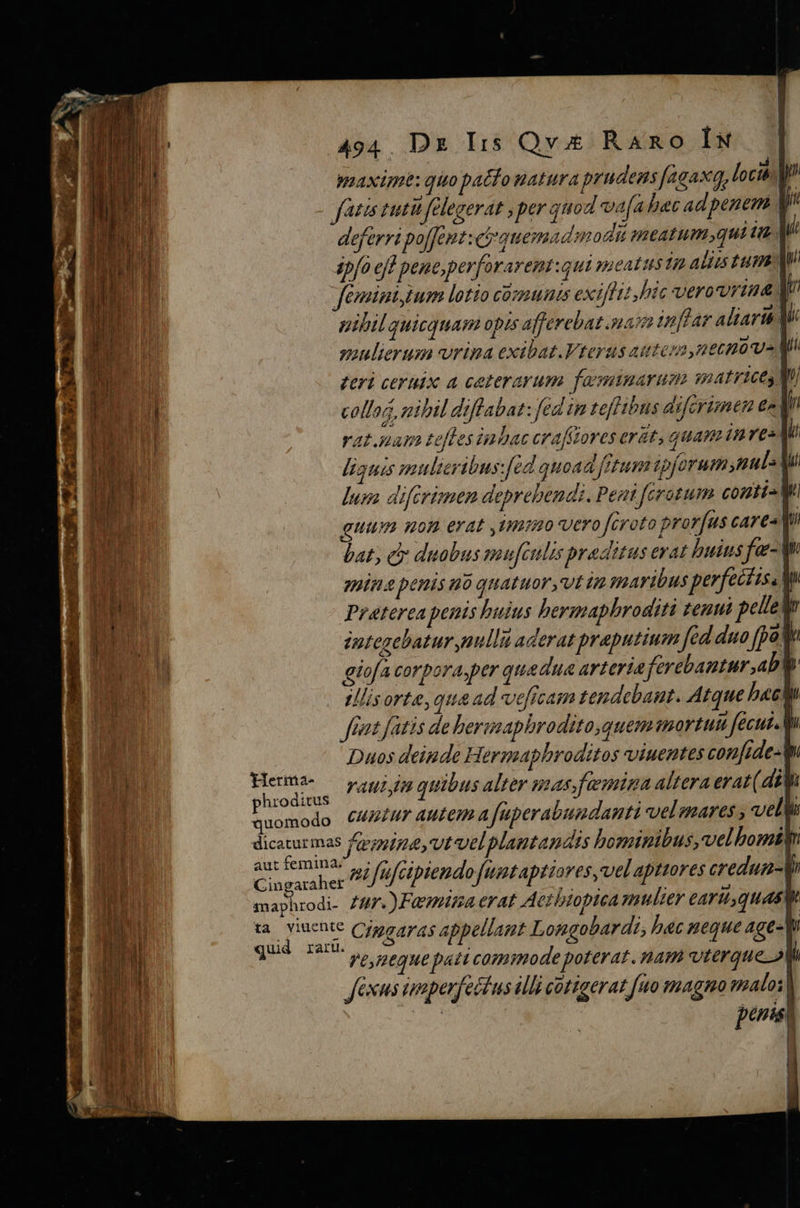 494 DE IIS QVÆ RARO IN
maxime: quo pacto natura prudens ſagaxq, locũ
ſatis tutũ ſelegerat, per quod vaſa hæc ad penem
deferri poſſent: & quemadmodũ meatum, qui in
ipſo eſt pene, perforarent: qui meatus in aliis tum
ſemini, tum lotio cõmunis exiſtit, hic vero vrinæ
nihil quicquam opis afferebat. nam inſtar aliarũ
mulierum vrina exibat. Vterus autem, necnõ v-
teri ceruix a cæterarum fœminarum matrices
colloq́, nihil diſtabat: ſed in teſtibus diſcrimen e-
rat. nam teſtes in hac craſſiores erãt, quam in re-
liquis mulieribus: ſed quoad ſitum ipſorum, nul-
lum diſcrimen deprehendi. Peni ſcrotum conti-
guum non erat, immo vero ſcroto prorſus care-
bat, & duobus muſculis præditus erat huius fœ-
minæ penis nõ quatuor, vt in maribus perfectis.
Præterea penis huius hermaphroditi tenui pelle
integebatur, nullũ aderat præputium ſed duo ſpõ
gioſa corpora, per quæ duæ arteriæ ferebantur, ab
illis ortæ, quæ ad veſicam tendebant. Atque hæc
ſint ſatis de hermaphrodito, quem mortuũ ſecui.
Duos deinde Hermaphroditos viuentes conſide-
raui, in quibus alter mas, fœmina altera erat (di
cuntur autem a ſuperabundanti vel mares, vel
fœminæ, vt vel plantandis hominibus, vel homi
ni ſuſcipiendo ſunt aptiores, vel aptiores credun-
tur.) Fœmina erat Aethiopica mulier earũ, quas
Cingaras appellant Longobardi, hæc neque age-
re, neque pati commode poterat. nam vterque
ſexus imperfectus illi cõtigerat ſuo magno malo:
penis
Herma-
phroditus
quomodo
dicatur mas
aut femina.
Cingaraher
maphrodi-
ta viuente
quid rarũ.